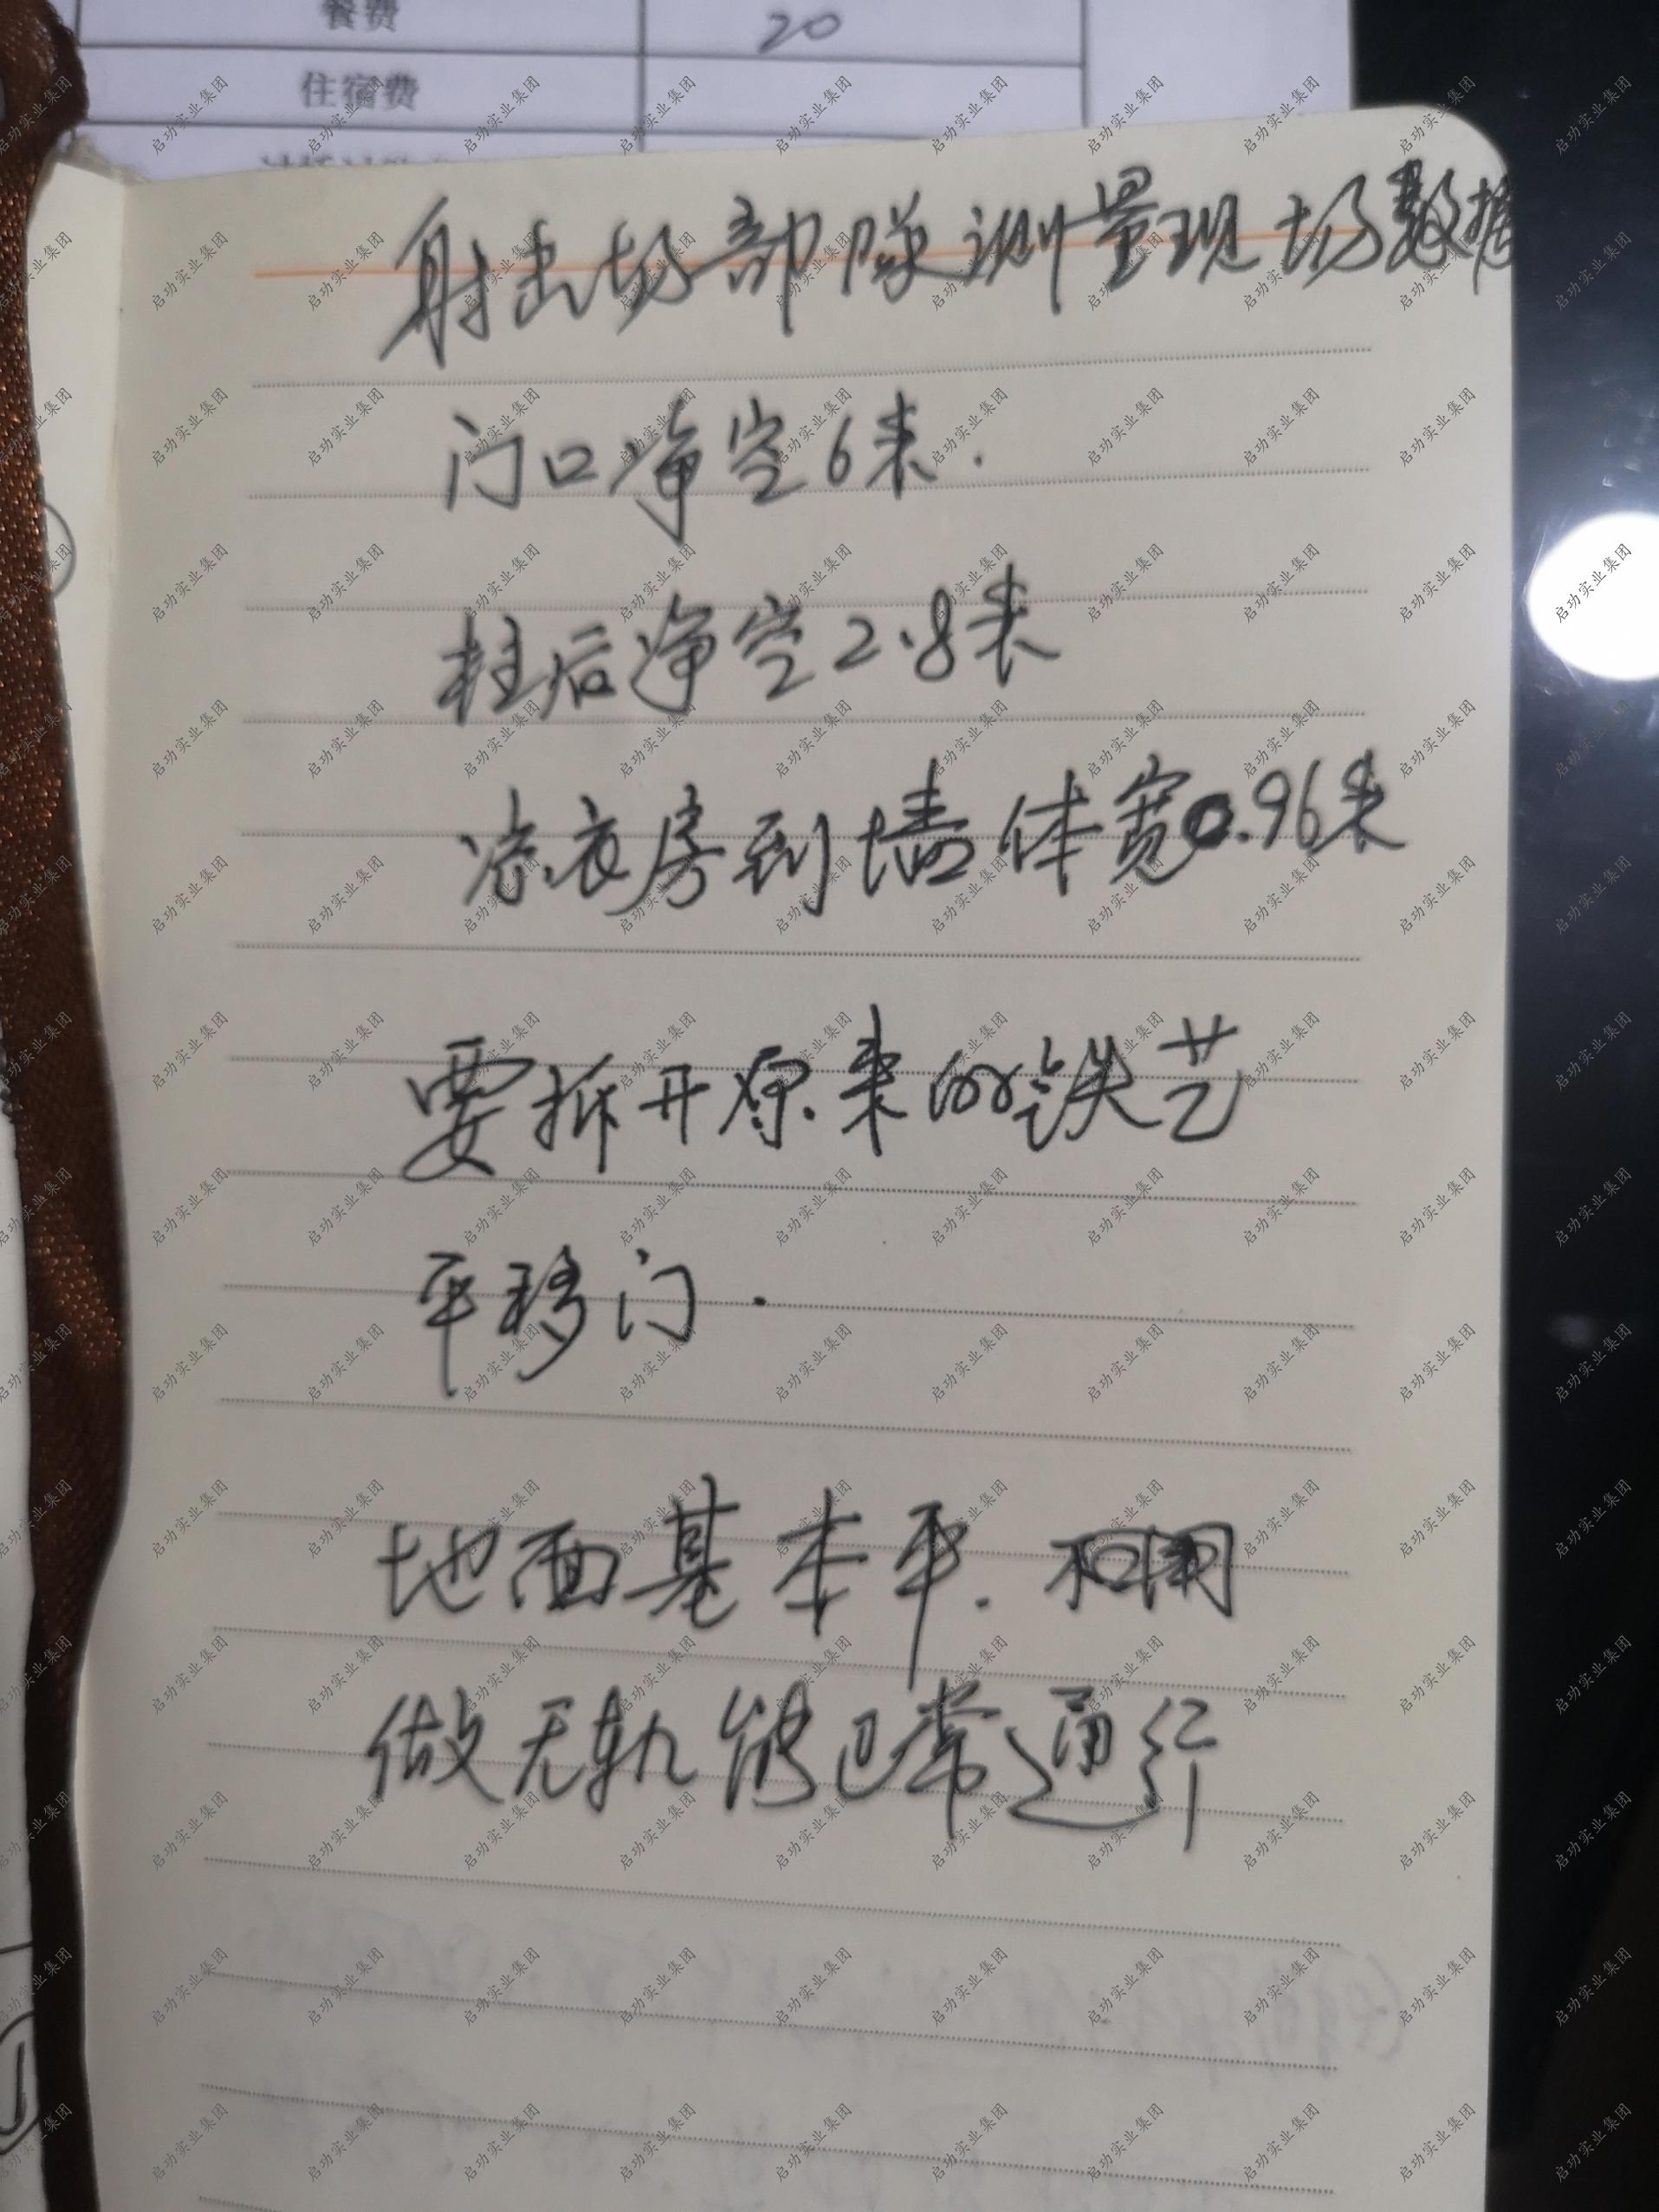 餐费 20
住宿费
射击场部队测量现场数据
门口净空6米.
柱后净空2.8米
凉衣房到墙体宽0.96米
要拆开原来的铁艺
平移门.
地面基本平.
做无轨能正常通行
启功实业集团